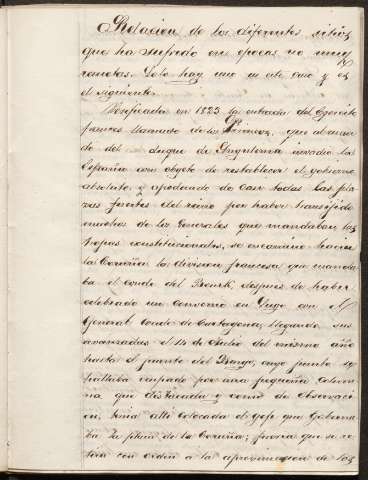 Relacion de los diferentes sitios
que ha sufrido en epocas no muy
remotas. Solo hay uno en este caso y es
el siguiente.
Verificada en 1823 la entrada del Ejercito
frances llamado de los Pirineos, que al man
do del duque de Angulema invadio la
España con objeto de restablecer el gobierno
absoluto, y apoderado de casi todas las pla
zas fuertes del reino por haber transijido
muchos de los Generales que mandaban las
tropas constitucionales, se encamino hacia
la Coruña la division francesa que manda
ba el conde del Bourk, despues de haber
celebrado un convenio en Lugo con el
General Conde de Cartagena, llegando sus
avanzadas el 14 de Julio del mismo año
hasta el puente del Burgo, cuyo punto se
hallaba ocupado por una pequeña colum
na que destacada y como de observaci
on, tenia alli colocada el gefe que Goberna
ba la plaza de la Coruña; fuerza que se re
tiró con orden a la aproximacion de las